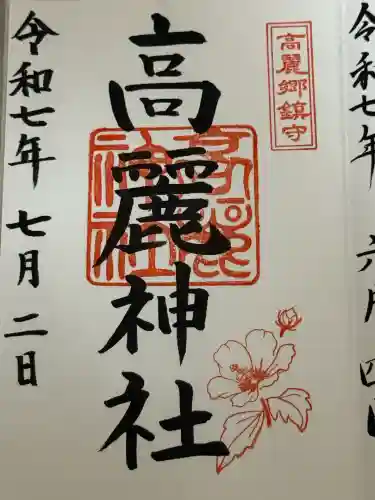 令和七年 六月 四
高麗郷鎮守
高麗神社
令和七年 七月 二日